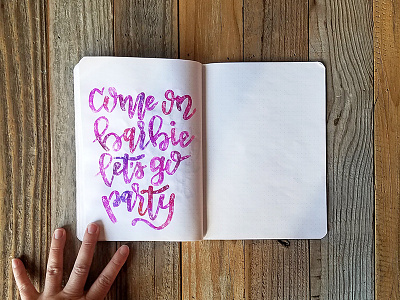 come on
barbie
let's go
party